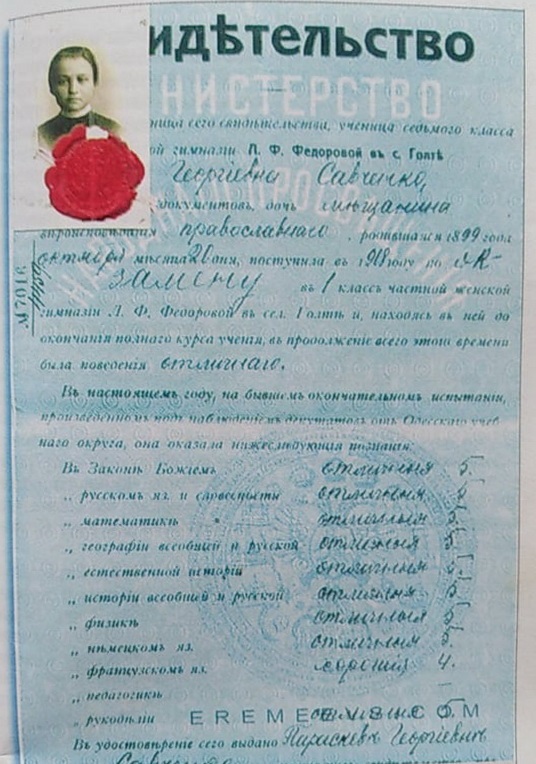 идѣтельство
МИНИСТЕРСТВО
ница сего свидѣтельства, ученица седьмого класса
ой гимназіи Л. Ф. Федоровой въ с. Голтѣ
Георгіевна Савченко,
документовъ, дочь мѣщанина
вѣроисповѣданія православнаго, родившаяся 1899 года
октября мѣсяца 26 дня, поступила въ 19 году по эк-
замену въ 1 классъ частной женской
гимназіи Л. Ф. Федоровой въ сел. Голтѣ и, находясь въ ней до
окончанія полнаго курса ученія, въ продолженіе всего этого времени
была поведенія отличнаго.
Въ настоящемъ году, на бывшемъ окончательномъ испытаніи,
произведенномъ подъ наблюденіемъ депутатовъ отъ Одесскаго учеб
наго округа, она оказала нижеслѣдующія познанія:
Въ Законѣ Божіемъ отличныя 5.
„ русскомъ яз. и словесности отличныя 5.
„ математикѣ отличныя 5.
„ географіи всеобщей и русской отличныя 5.
„ естественной исторіи отличныя 5.
„ исторіи всеобщей и русской отличныя 5.
„ физикѣ отличныя 5.
„ нѣмецкомъ яз. отличныя 5.
„ французскомъ яз. хорошія 4.
„ педагогикѣ
„ рукодѣліи отличныя 5.
EREMEEVS.COM
Въ удостовѣреніе сего выдано Параскевѣ Георгіевнѣ
№ 7016